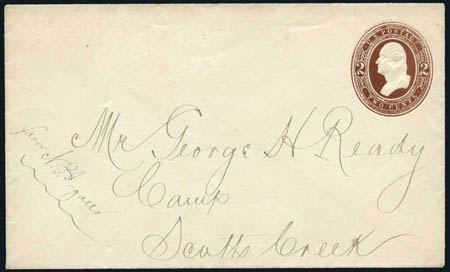 U.S. POSTAGE
2 2
TWO CENTS
Mr George H Ready
Camp
Scotts Creek
favor